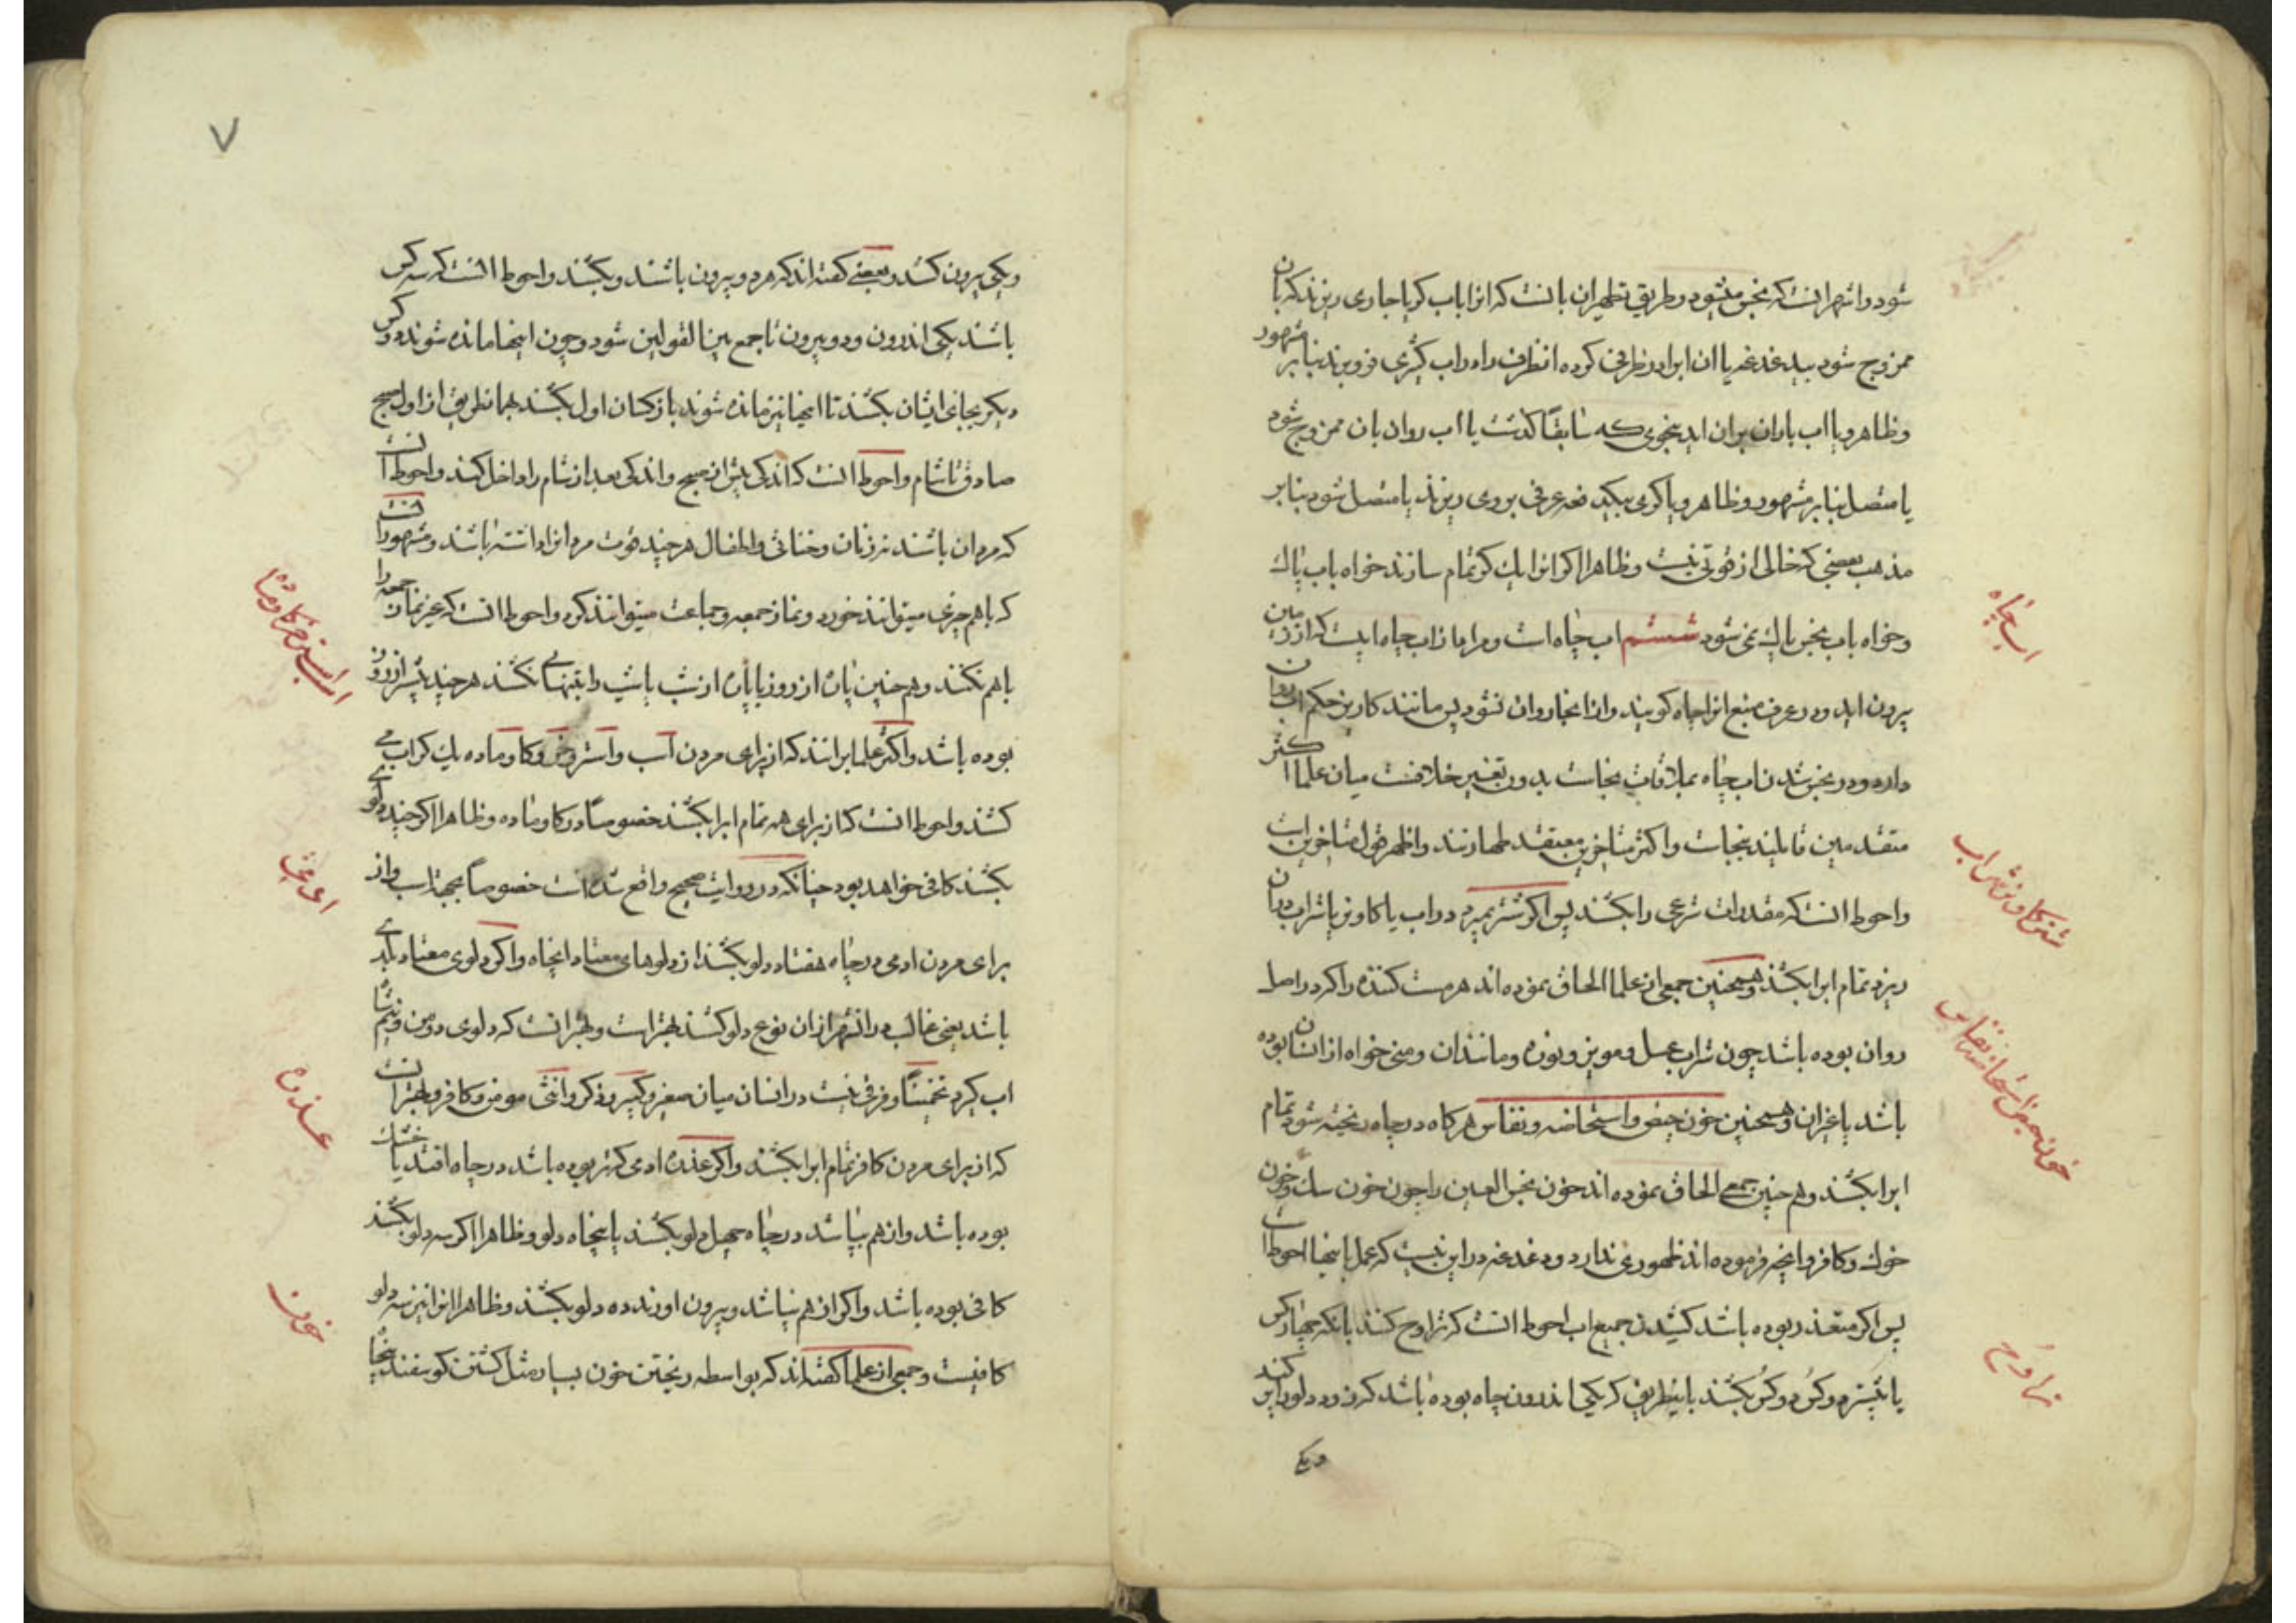 شود و اشهر آنست که نجس میشود و طریق تطهیر آن بانست که آنرا باب کر یا جاری ریزند که بآن
ممزوج شود بیدغدغه یا آن ابرا در ظرفی کرده آنظرف را در آب کثیری فرو برند بنا بر مشهور
و ظاهر و یا آب باران بران آید بنحوی که سابقاً گذشت یا آب روان بان ممزوج شود
یا متصل بنا بر مشهور و ظاهر و یا کری بیکدفعه عرفی بروی ریزند یا متصل شود بنا بر
مذهب بعضی که خالی از قوتی نیست و ظاهرا اگر آنرا یک کر تمام سازند خواه باب پاک
و خواه باب نجس پاک نمی شود ششم آب چاه است و مراد از آب چاه ابیست که از زمین
بیرون آید و در عرف منبع آنرا چاه گویند و از آنجا روان نشود پس مانند کاریز حکم آب روان
دارد و در نجس شدن آب چاه بملاقات نجاست بدون تغییر خلافست میان علما اکثر
متقدمین قایلند بنجاست و اکثر متاخرین معتقد طهارتند و اظهر قول متاخرین است
و احوط آنست که مقدرات شرعی را بکشند پس اگر شتر بمیرد در آب یا گاو نر یا شراب در آن
ریزد تمام ابرا بکشند و همچنین جمعی از علما الحاق نموده اند هر مست کننده را که در اصل
روان بوده باشد چون شراب عسل و مویز و بوزه و مانند آن و منی خواه از انسان بوده
باشد یا غیر آن و همچنین خون حیض و استحاضه و نفاس هرگاه در چاه ریخته شود تمام
ابرا بکشند و هم چنین جمعی الحاق نموده اند خون نجس العین را چون خون سک و خون
خوک و کافر و آنچه فرموده اند ظهوری ندارد و دغدغه در این نیست که عمل باینها احوط است
پس اگر متعذر بوده باشد کشیدن جمیع اب احوط آنست که تراوح کنند بآنکه چهار کس
یا بیشتر دو کس دو کس بکشند باینطریق که یکی اندرون چاه بوده باشد که زود دلو را پر کند
ویکی
آب چاه
شتر گاو نر شراب
خون حیض استحاضه نفاس
تراوح
۷
و یکی بیرون کشد و بعضی گفته اند که هر دو بیرون باشند و بکشند و احوط آنست که سه کس
باشند یکی اندرون و دو بیرون تا جمع بین القولین شود و چون اینها مانده شوند دو کس
دیگر بجای ایشان بکشند تا اینها نیز مانده شوند باز کسان اول بکشند بهمان طریق از اول صبح
صادق تا شام و احوط آنست که اندکی پیش از صبح و اندکی بعد از شام را داخل کنند و احوط آنست
که مردان باشند نه زنان و خناثی و اطفال هر چند قوت مردانرا داشته باشند و مشهور آنست
که باهم چیزی میتوانند خورد و نماز جمعه و جماعت میتوانند کرد و احوط آنست که غیر نماز جمعه را
باهم نکنند و هم چنین پاره از روز یا پاره از شب یا شب را بتنهائی نکشند هر چند بیشتر از روز
بوده باشد و اکثر علما برانند که از برای مردن اسب و استر و خر و گاو ماده یک کر آب می
کشند و احوط آنست که از برای همه تمام ابرا بکشند خصوصاً در گاو ماده و ظاهرا اگر چند دلوی
بکشند کافی خواهد بود چنانکه در روایت صحیح واقع شده است خصوصاً بجهة اسب و از
برای مردن ادمی در چاه هفتاد دلو بکشند از دلوهای معتاد انچاه و اگر دلوی معتاد بلدی
باشد یعنی غالب در انشهر از ان نوع دلو کشند بهتر است و بهتر آنست که دلوی دو من و نیم شاه
آب گیرد تخمیناً و فرقی نیست در انسان میان صغیر و کبیر و ذکر و انثی مومن و کافر و بهتر آنست
که از برای مردن کافر تمام ابرا بکشند و اگر عذره ادمی که تر بوده باشد در چاه افتد یا خشک
بوده باشد و از هم بپاشد در چاه چهل دلو بکشند یا پنجاه دلو و ظاهرا اگر سه دلو بکشند
کافی بوده باشد و اگر از هم نپاشد و بیرون اورند ده دلو بکشند و ظاهرا آنرا نیز سه دلو
کافیست و جمعی از علما گفته اند که بواسطه ریختن خون بسیار مثل کشتن گوسفند پنجاه
اسب استر خر گاو ماده
ادمی
عذره
خون